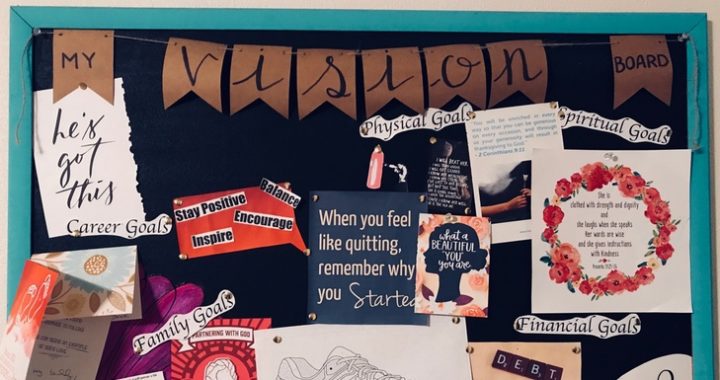 MY
vision
BOARD
he's
got
this
Career Goals
Stay Positive
Balance
Encourage
Inspire
Physical Goals
Spiritual Goals
You will be enriched in every
way so that you can be generous
on every occasion, and through
us your generosity will result in
thanksgiving to God."
- 2 Corinthians 9:11
When you feel
like quitting,
remember why
you Started
what a
BEAUTIFUL
"YOU"
you are
She is
clothed with strength and dignity
and
she laughs
when she speaks
Her words are wise
and she gives instructions
with kindness
Proverbs 31:25-26
Family Goals
PARTNERING WITH GOD
Financial Goals
DEBT